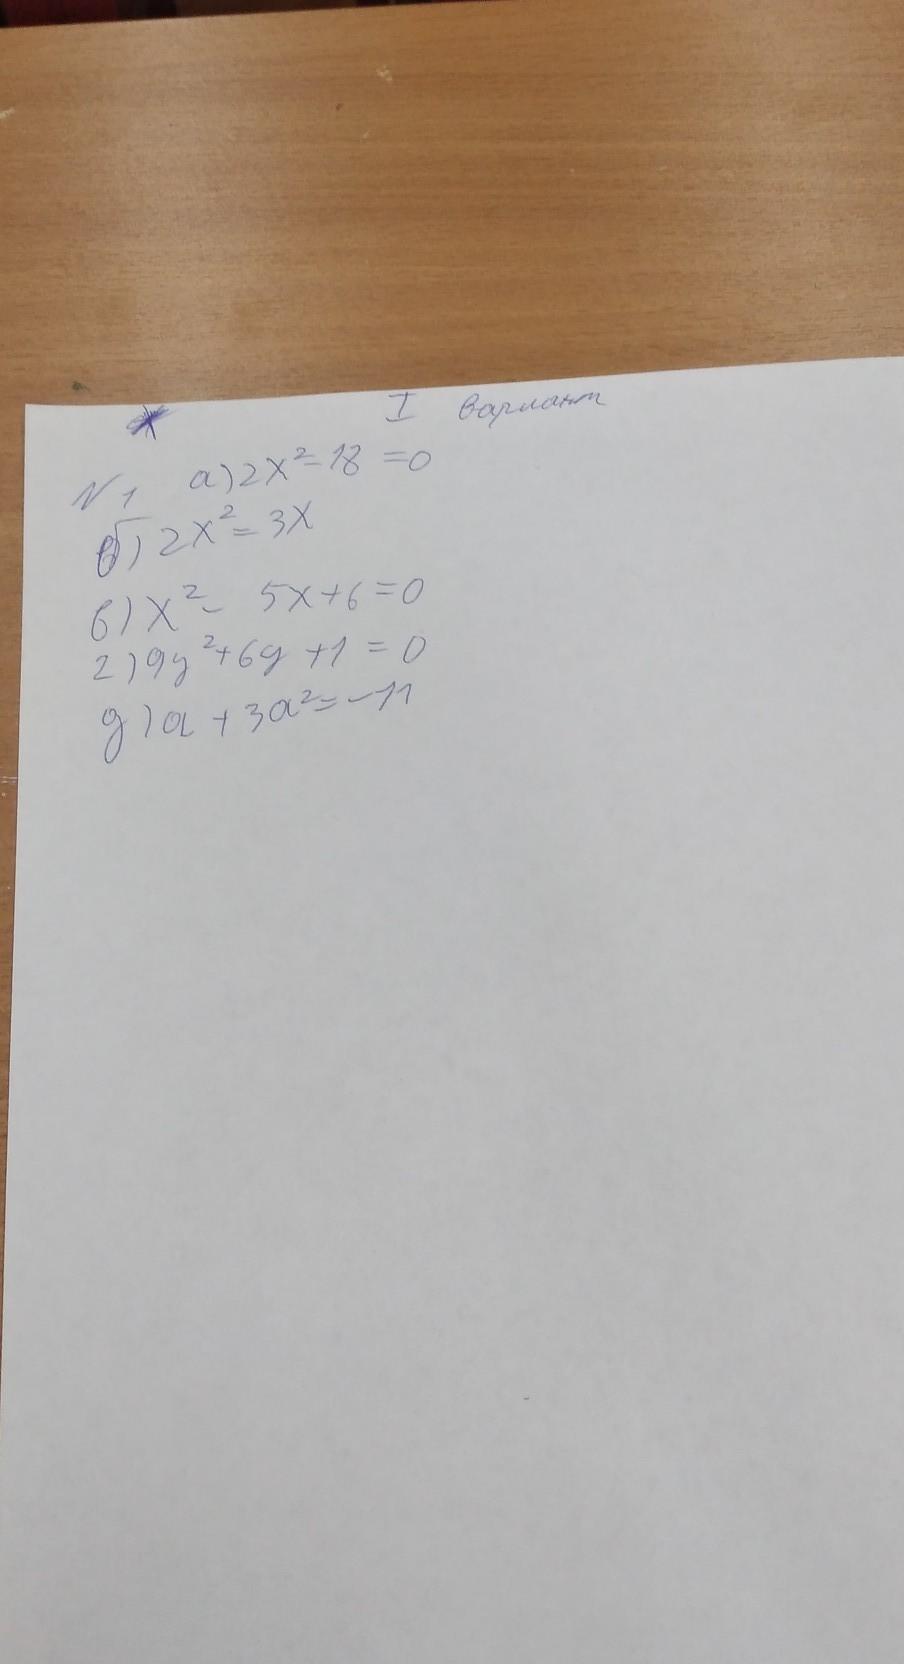 I вариант
№1 а) 2x² - 18 = 0
б) 2x² = 3x
в) x² - 5x + 6 = 0
г) 9y² + 6y + 1 = 0
д) a + 3a² = -11